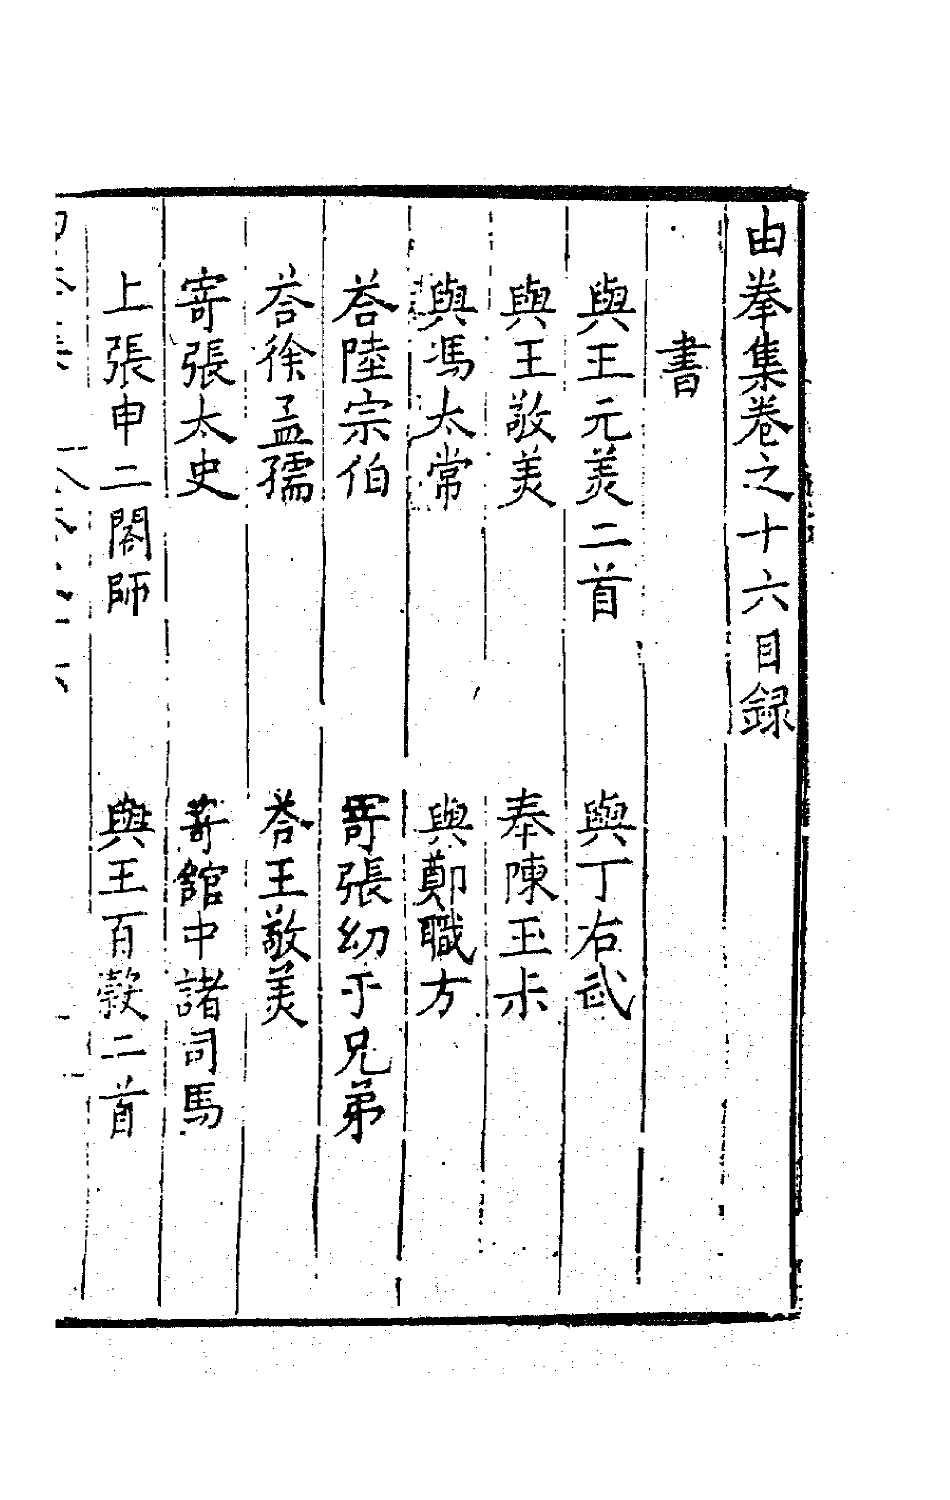 由拳集卷之十六目録
書
與王元美二首　與丁右武
與王敬美　奉陳玉朩
與馮太常　與鄭職方
荅陸宗伯　寄張幼于兄弟
荅徐孟孺　荅王敬美
寄張太史　寄館中諸司馬
上張申二閣師　與王百穀二首